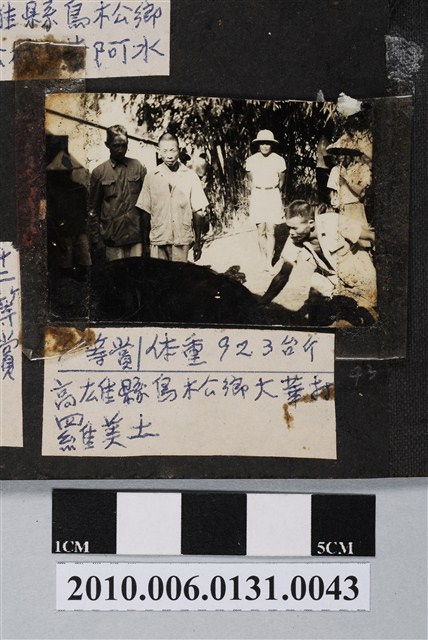 雄縣鳥松鄉
阿水
二等賞
等賞 体重 923台斤
高雄縣鳥松鄉大華村
羅美土
1CM
5CM
2010.006.0131.0043